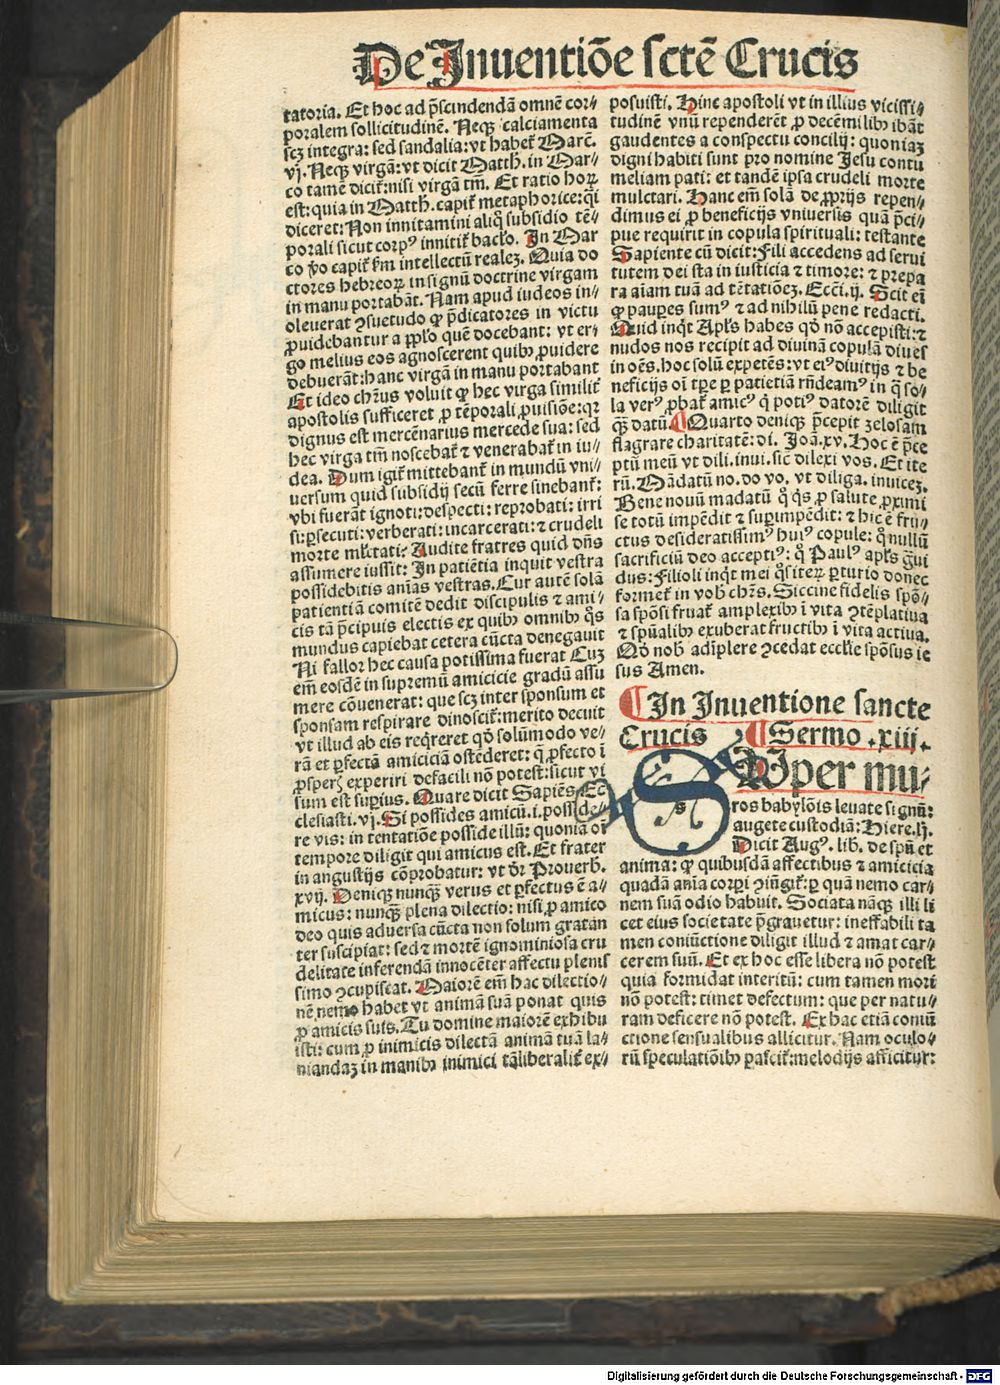 De Inuentiõe sctẽ Crucis
tatoria. Et hoc ad p̃scindendã omnẽ cor⸗
poralem sollicitudinẽ. Neqꝫ calciamenta
scꝫ integra: sed sandalia: vt habet̃ Marc̃.
vj. Neqꝫ virgã: vt dicit Matth. in Mar⸗
co tamẽ dicit̃: nisi virgã tm̃. Et ratio horꝝ
est: quia in Matth. capit̃ metaphorice: q̃i
diceret: Non innitamini aliq̃ subsidio tẽ⸗
porali sicut corpꝰ innitit̃ bac̃lo. In Mar
co ṽo capit̃ s̃m intellectũ realeꝫ. Quia do
ctores hebreorꝝ in signũ doctrine virgam
in manu portabãt. Nam apud iudeos in⸗
oleuerat ꝯsuetudo ꝙ p̃dicatores in victu
ꝓuidebantur a pp̃lo quẽ docebant: vt er⸗
go melius eos agnoscerent quibꝰ ꝓuidere
debuerãt: hanc virgã in manu portabant
Et ideo chr̃us voluit ꝙ hec virga similit̃
apostolis sufficeret ꝓ tẽporali ꝓuisiõe: qꝛ
dignus est mercẽnarius mercede sua: sed
hec virga tm̃ noscebat̃ ⁊ venerabat̃ in iu⸗
dea. Dum igit̃ mittebant̃ in mundũ vni⸗
uersum quid subsidij secũ ferre sinebant̃:
vbi fuerãt ignoti: despecti: reprobati: irri
si: ꝑsecuti: verberati: incarcerati: ⁊ crudeli
morte ml̃ctati? Audite fratres quid dñs
assumere iussit: In patiẽtia inquit vestra
possidebitis animas vestras. Cur autẽ solã
patientiã comitẽ dedit discipulis ⁊ ami⸗
cis tã p̃cipuis electis ex quibꝰ omnibꝰ q̊s
mundus capiebat cetera cũcta denegauit
Ni fallor hec causa potissima fuerat Cuꝫ
em̃ eosdẽ in supremũ amicicie gradũ assũ
mere cõuenerat: que scꝫ inter sponsum et
sponsam respirare dinoscit̃: merito decuit
vt illud ab eis req̃reret qð solũmodo ve⸗
rã et ꝑfectã amiciciã ostẽderet: q̃ ꝓfecto ĩ
ꝓsperꝭ experiri defacili nõ potest: sicut vi
sum est suꝑius. Quare dicit Sapiẽs Ec
clesiasti. vj. Si possides amicũ .i. posside⸗
re vis: in tentatiõe posside illũ: quoniã oĩ
tempore diligit qui amicus est. Et frater
in angustijs cõprobatur: vt dr̃ Prouerb.
xvij. Deniqꝫ nunqꝫ verus et ꝑfectus ẽ a⸗
micus: nunqꝫ plena dilectio: nisi ꝓ amico
deo quis aduersa cũcta non solum gratan
ter suscipiat: sed ⁊ mortẽ ignominiosa cru
delitate inferendã innocẽter affectu plenis
simo ꝯcupiscat. Maiorẽ em̃ hac dilectio⸗
nẽ nemo habet vt animã suã ponat quis
ꝓ amicis suis. Tu domine maiorẽ exhibu
isti: cum ꝓ inimicis dilectã animã tuã la⸗
niandaꝫ in manibꝰ inimici tã liberalit̃ ex⸗
posuisti. Hinc apostoli vt in illius vicissi⸗
tudinẽ vnũ rependerẽt ꝓ decẽmilibꝰ ibãt
gaudentes a conspectu concilij: quoniaꝫ
digni habiti sunt pro nomine Jesu contu
meliam pati: et tandẽ ipsa crudeli morte
mulctari. Hanc em̃ solã de ꝓprijs repen⸗
dimus ei ꝓ beneficijs vniuersis quã p̃ci⸗
pue requirit in copula spirituali: testante
Sapiente cũ dicit: Fili accedens ad serui
tutem dei sta in iusticia ⁊ timore: ⁊ prepa
ra aiam tuã ad tẽtatiõeꝫ. Ecc̃i. ij. Scit em̃
ꝙ pauꝑes sumꝰ ⁊ ad nihilũ pene redacti.
Quid inq̃t Apl̃s habes qð nõ accepisti: ⁊
nudos nos recipit ad diuinã copulã diues
in oẽs. hoc solũ expetẽs: vt eiꝰ diuitijs ⁊ be
neficijs oĩ tꝑe ꝑ patiẽtiã rñdeamꝰ in q̃ so⸗
la verꝰ ꝓbat̃ amicꝰ q̃ potiꝰ datorẽ diligit
qꝫ datũ. ¶ Quarto deniqꝫ p̃cepit zelosam
flagrare charitatẽ: di. Joã. xv. Hoc ẽ p̃ce
ptũ meũ vt dili. inui. sic̃ dilexi vos. Et ite
rũ. Mãdatũ no. do vo. vt diliga. inuiceꝫ.
Bene nouũ madatũ q̊ q̊s ꝓ salute ꝓximi
se totũ impẽdit ⁊ suꝑimpẽdit: ⁊ hic ẽ fru⸗
ctus desideratissimꝰ huiꝰ copule: q̊ nullũ
sacrificiũ deo acceptiꝰ: q̊ Paulꝰ apl̃s g̃ui
dus: Filioli inq̃t mei q̊s iterꝝ ꝑturio donec
formet̃ in vob̃ chr̃s. Siccine fidelis spõ⸗
sa spõsi fruat̃ amplexibꝰ ĩ vita ꝯtẽplatiua
⁊ spũalibꝰ exuberat fructibꝰ ĩ vita actiua.
Qð nob̃ adĩplere ꝯcedat eccl̃ie spõsus ie
sus Amen.
¶ In Inuentione sancte
Crucis ¶ Sermo .xiij.
SUper mu⸗
ros babylõis leuate signũ:
augete custodiã: Hiere. lj.
Dicit Augꝰ. lib. de spũ et
anima: ꝙ quibusdã affectibus ⁊ amicicia
quadã anĩa corꝑi ꝯiũgit̃: ꝑ quã nemo car⸗
nem suã odio habuit. Sociata nãqꝫ illi li
cet eius societate p̃grauetur: ineffabili ta
men coniũctione diligit illud ⁊ amat car⸗
cerem suũ. Et ex hoc esse libera nõ potest
quia formidat interitũ: cum tamen mori
nõ potest: timet defectum: que per natu⸗
ram deficere nõ potest. Ex hac etiã coniũ
ctione sensualibus allicitur. Nam oculo⸗
rũ speculatiõibꝰ pascit̃: melodijs afficitur:
Digitalisierung gefördert durch die Deutsche Forschungsgemeinschaft - DFG